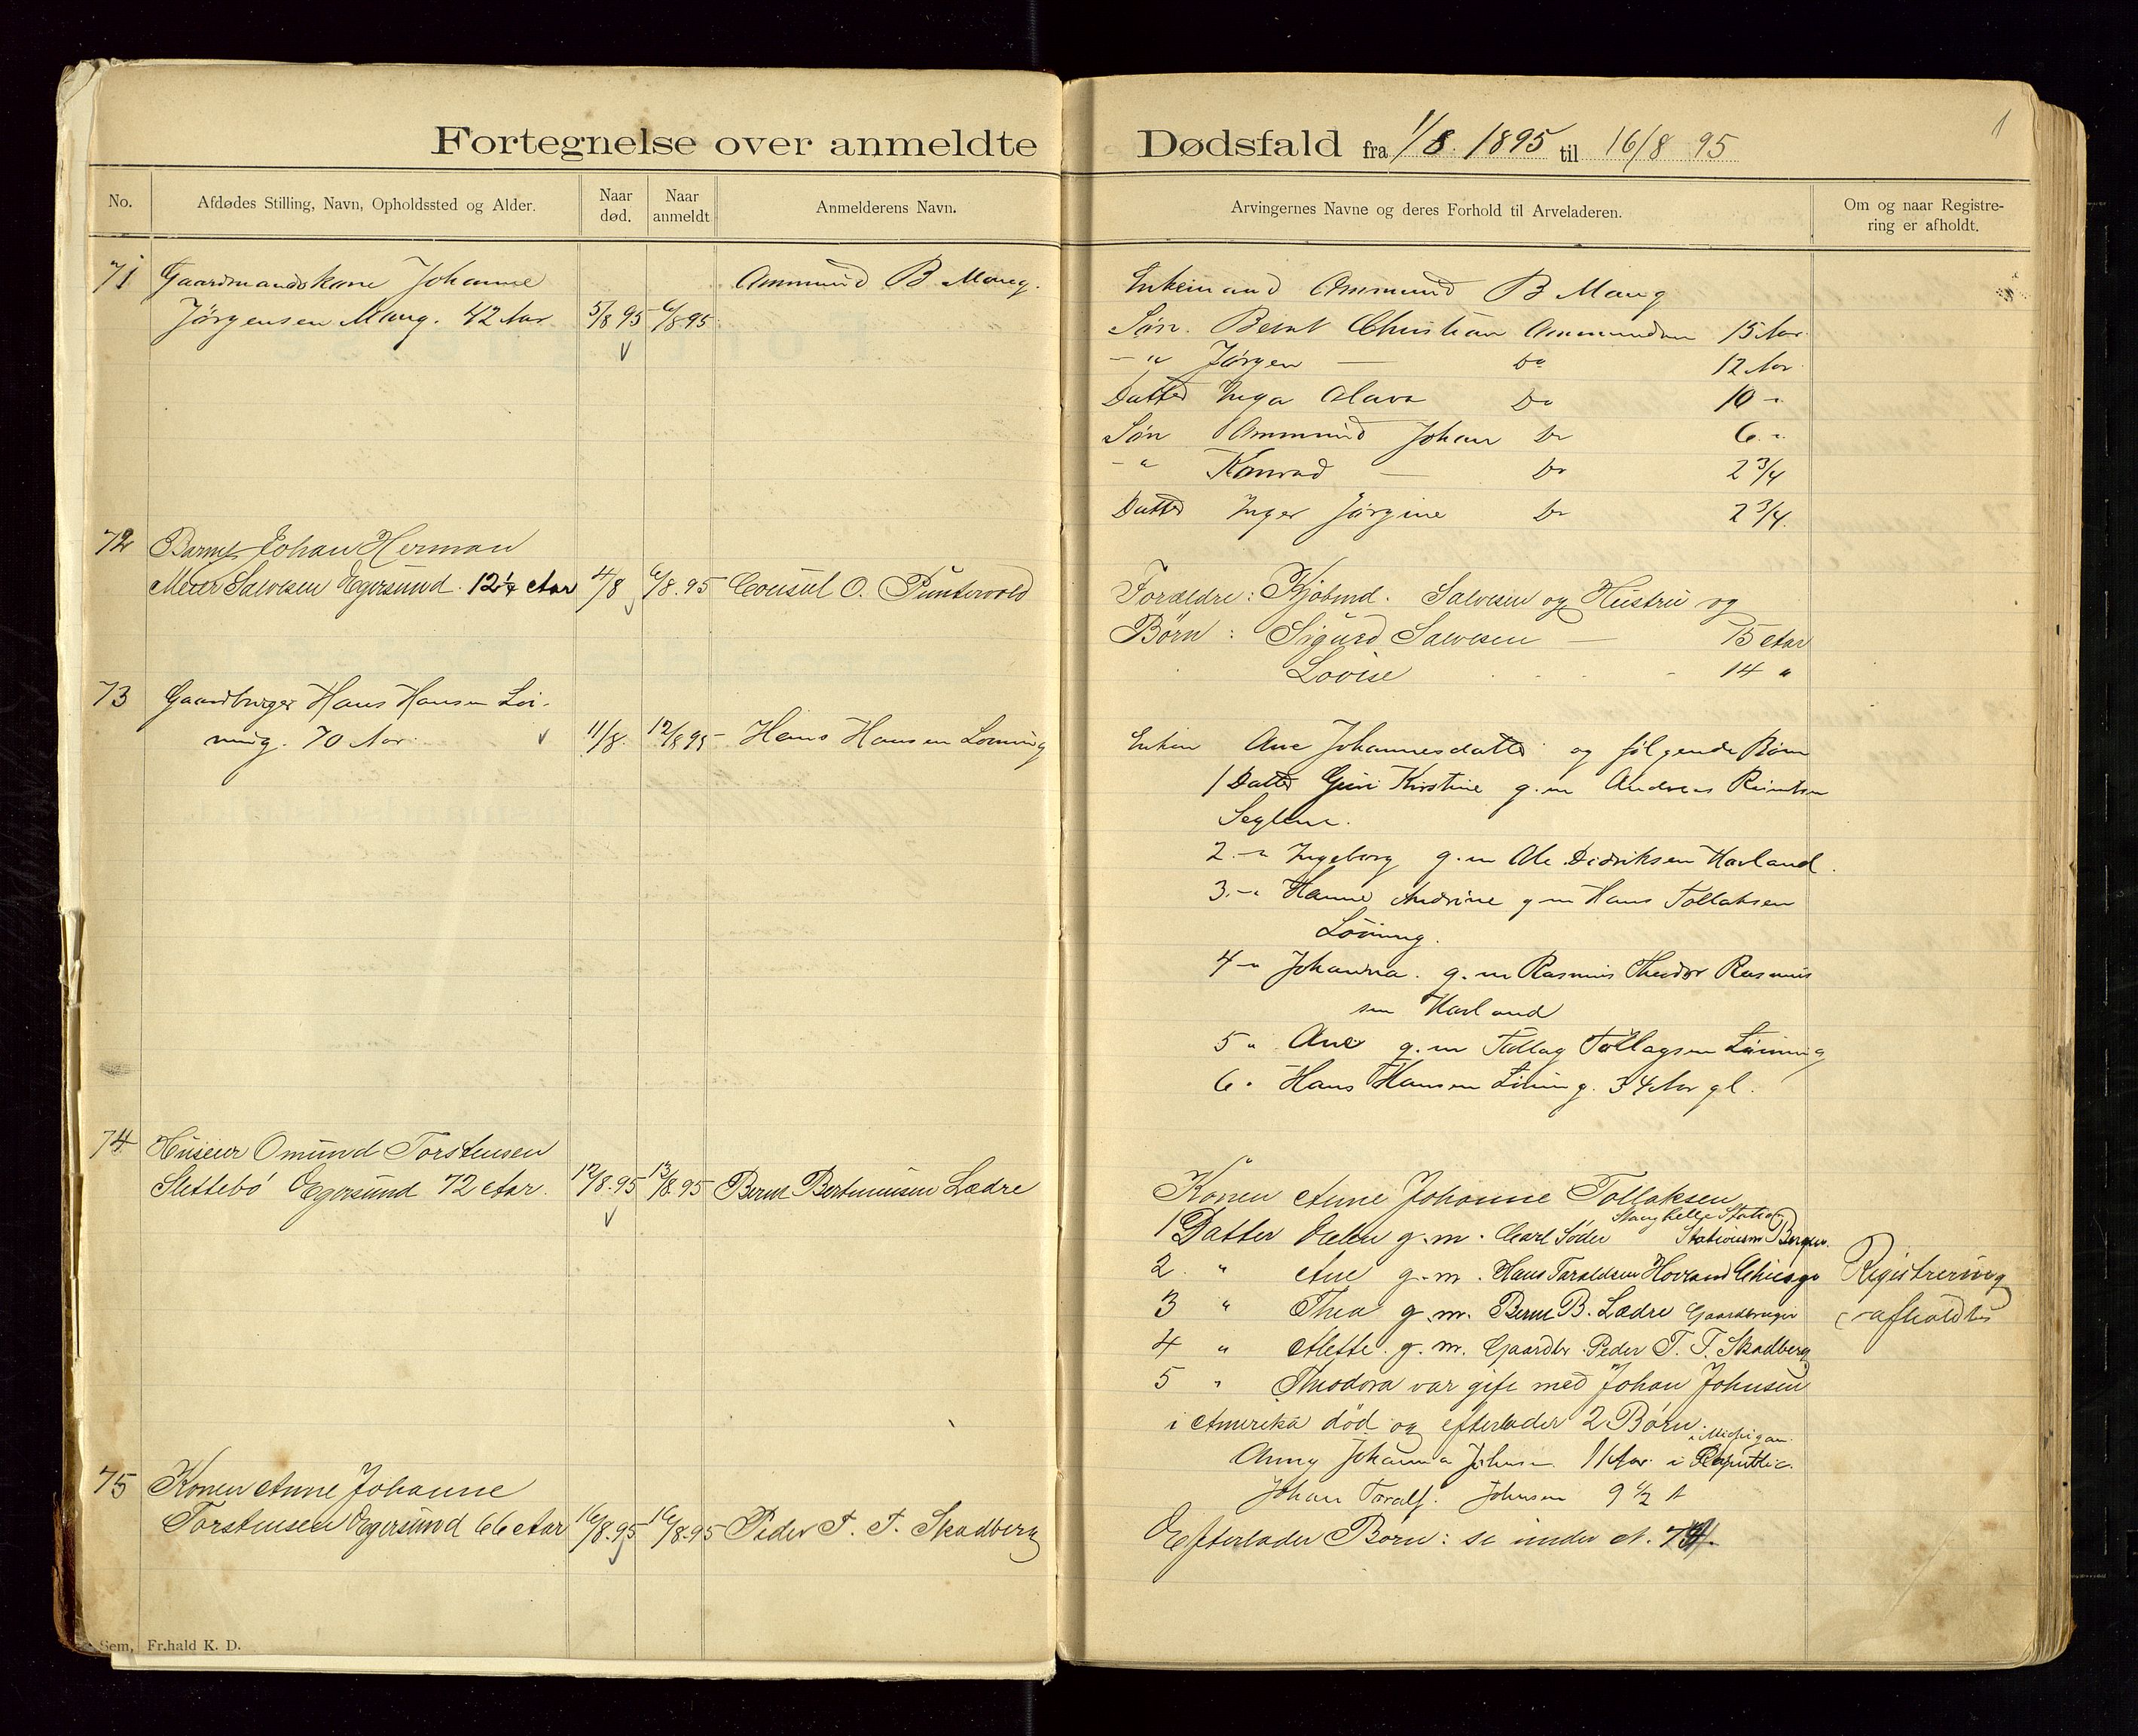 Fortegnelse over anmeldte
No.
Afdødes Stilling, Navn, Opholdssted og Alder.
Naar død.
Naar anmeldt
Anmelderens Navn.
71 Gaardmandskone Johanne Ammund B. Maug.
Jörgensen Maug. 42 Aar 5/8 95 6/8 95
72 Barnet Johan Herman
Meier Salvesen Egersund. 12 1/4 Aar 4/8 6/8. 95 Consul O. Puntervold
73 Gaardbruger Hans Hansen Löi-
ning. 70 Aar. 11/8. 12/8 95 Hans Hansen Löining
74 Huseier Omund Torstensen
Slettebö Egersund 72 Aar. 12/8. 95 13/8. 95 Bernt Bertinussen Lædre
75 Konen Anne Johanne
Torstensen Egersund 66 Aar 16/8. 95 16/8. 95 Peder T. T. Skadberg
Sem, Fr.hald K. D.
1
Dødsfald fra 1/8. 1895 til 16/8 95
Arvingernes Navne og deres Forhold til Arveladeren.
Om og naar Registre-
ring er afholdt.
Enkemand Ammund B Maug
Søn. Bernt Christian Ammundsen 15 Aar.
- " Jörgen — Do 12 Aar
Datter Inga Olava Do 10 "
Søn Ammund Johan Do 6 "
- " Konrad — Do 2 3/4
Datter Inger Jörgine Do 2 3/4.
Forældre: Kjøbmd. Salvesen og Hustru og
Börn: Sigurd Salvesen — 15 Aar
Lovise 14 "
Enken Ane Johannesdatter og følgende Börn
1 Datter Guri Kirstine g. m Andreas
2. - " Ingeborg g. m Ole Didriksen Havland.
3. - " Hanne Andrine g m Hans Tollaksen
Löining.
4 - " Johanna. g. m Rasmus Theodor Rasmus
sen Havland
5 " Ane g. m Tollag Tollagsen Löining
6. Hans Hansen Löining. 34 Aar gl.
Konen Anne Johanne Tollaksen
Stanghelle Station
1 Datter Helen g. m. Carl Söder Stationsm Bergen.
2. " Ane g. m. Hans Taraldsen Hovland Chicago Registrering
3 " Thea g. m. Bernt B. Lædre Gaardbruger afholdt
4 " Mette. g. m. Gaardbr. Peder T. T. Skadberg
5 " Theodora var gift med Johan Johnsen
i Amerika död og efterlader 2 Börn.
i Michigan.
Anny Johanna Johnsen 11 Aar. i Republic.
Johan Toralf. Johnsen 9 1/2 A
Efterlader Börn: se under N. 74.